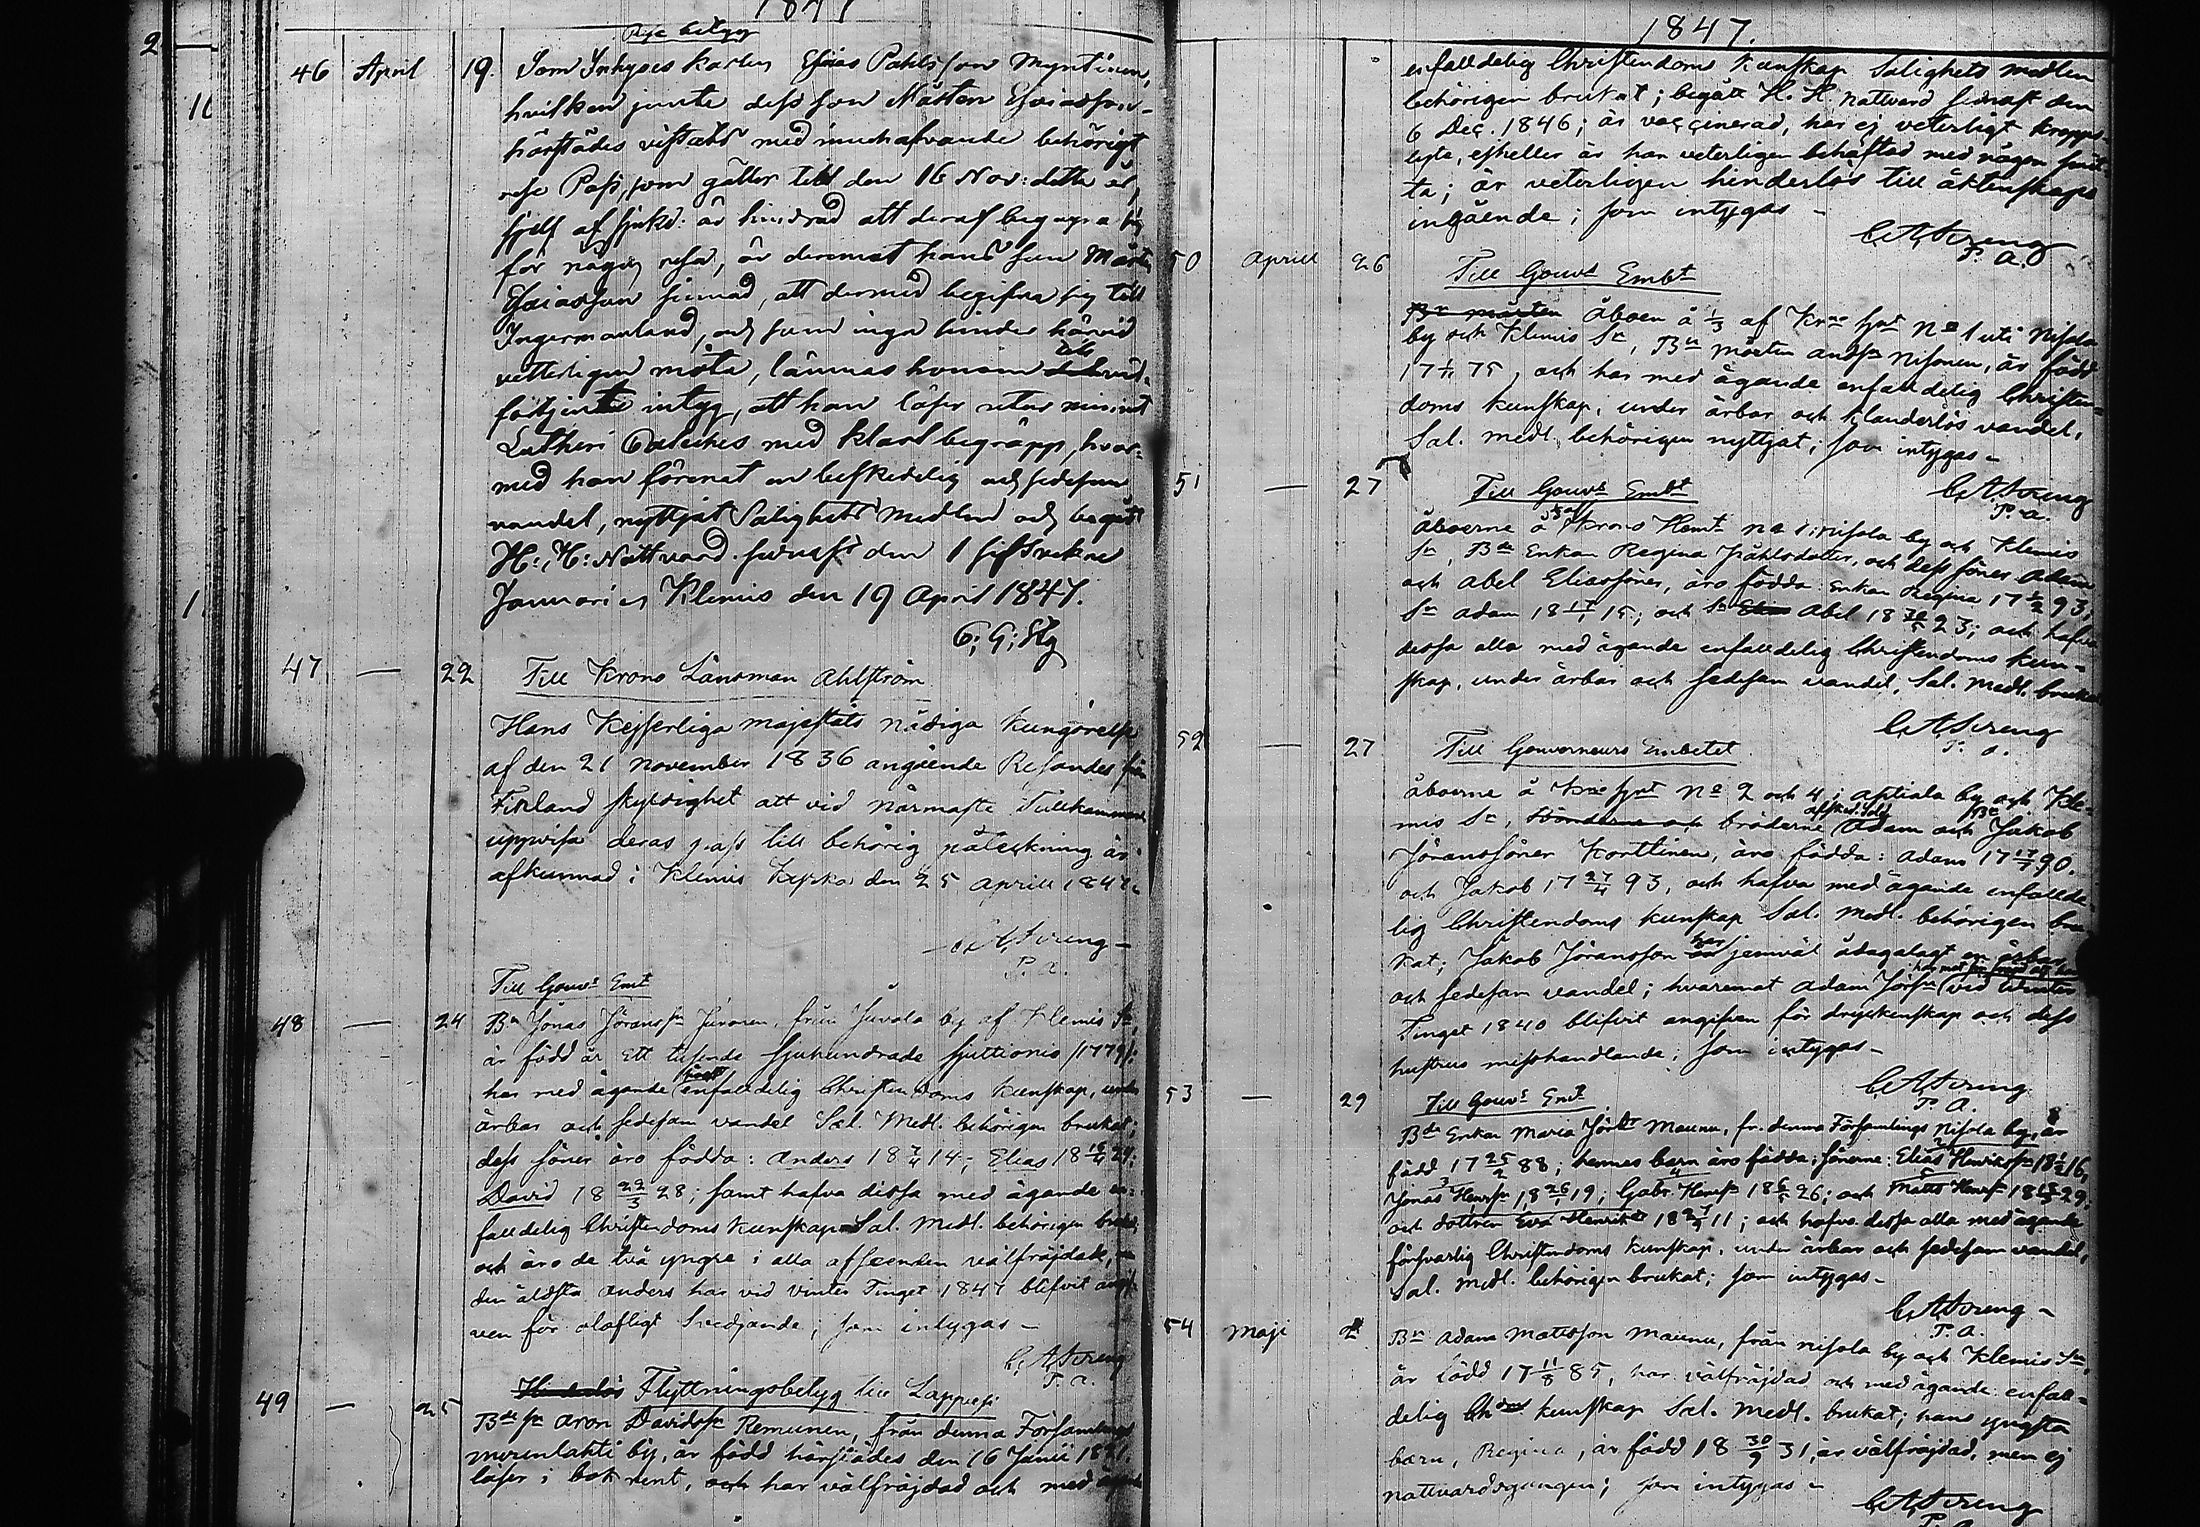 1847
Rese betyg
46 April 19. Som Inhyses karlen Esaias Pahlsson Myntinen,
hvilken jemte dess son Mårten Esaiasson
härstädes vistats med innehafvande behörigt
rese Pass, som gäller till den 16 Nov: detta år,
sjelf af sjukd: är hindrad att deraf begagna sig
för någon resa, är deremot hans son Mårten
Esaiasson sinnad, att dermed begifva sig till
Ingermanland, och som inga hinder härvid
vetterligen möta, lämnas honom
förtjente intyg, att han läser utur minnet
Lutheri Cateches med klart begrepp, hvar-
med han förenat en beskedelig och sedesam
vandel, nyttjat Salighets Medlen och begått
H: H: Nattvard senast den 1 sistvekne
Januarii, Klemis den 19 April 1847.
47 — 22 Till Krono Länsman Ahlström
Hans Kejserliga majestäts nådiga kungörelse
af den 21 November 1836 angående Resandes från
Finland skyldighet att vid närmaste Tullkammare
uppvisa deras pass till behörig påteckning är
afkunnad i Klemis Kyrka den 25 Aprill 1847.
P. A.
Till Gouvs Embt
48 — 24 Bn Jonas Jöranss. Juvonen, från Juvola by af Klemis Sn,
är född år ett tusende sjuhundrade sjuttionio /1779/:
har med ägande enfalldelig Christendoms kunskap, under
ärbar och sedesam vandel Sal. Medl. behörigen brukat;
dess söner äro födda: Anders 18 7/4 14; Elias 18
David 18 22/3 28; samt hafva dessa med ägande en-
falldelig Christendoms kunskap Sal. Medl. behörigen brukat,
och äro de två yngre i alla afseenden välfräjdade,
den äldsta Anders har vid vinter Tinget 1847 blifvit angif-
ven för olofligt Svedjande; som intygas —
P. A.
49 — 25 Flyttningsbetyg till Lappvesi
Aron Davidss. Remunen, från denna Församlings
by, är född härstädes den 16 Junii
läser i bok rent, och har välfräjdad och med ägande
1847.
enfalldelig Christendoms kunskap Salighets medlen
behörigen brukat; begått H. H. Nattvard sednast den
6 Dec. 1846; är vaccinerad, har ej veterligt kropps
lyte, ejheller är han veterligen behäftad med någon smit-
ta; är veterligen hinderlös till äktenskaps
ingående; som intygas —
P. A.
50 Aprill 26 Till Gouvs Embt
Åboen å 1/3 af Krno Hmt No 1 uti Nisola
by och Klemis Sn, Bn Mårten Andss. Nisonen, är född
17 75, och har med ägande enfalldelig Christen-
doms kunskap, under ärbar och klanderlös vandel,
Sal. medl. behörigen nyttjat; som intygas —
P. A.
51 — 27 Till Gouvs Embt
Åboerne å Krono Hemt No 1 i Nisola by och Klemis
Sn, Enkan Regina Påhlsdotter, och dess söner Adam
och Abel Eliassöner, äro födda: Enkan Regina 17 93;
Sn Adam 18 15; och Sn Abel 18 23; och hafva
dessa alla med ägande enfalldelig Christendoms kun-
skap, under ärbar och sedesam vandel, Sal. Medl. brukat
P. A.
52 — 27 Till Gouverneurs Embetet
Åboerne å Krno Hmt No 2 och 4 i by och Kle-
mis Sn, Bönderne och bröderne Adam och Jakob
Jöranssöner Korttinen, äro födda: Adam 17 90.
och Jakob 17 27/4 93, och hafva med ägande enfallde-
lig Christendoms kunskap Sal. Medl. behörigen bru-
kat; Jakob Jöransson har jemväl ådagalagt en ärbar
och sedesam vandel; hvaremot Adam Jörss. vid Winter
Tinget 1840 blifvit angifven för dryckenskap och dess
hustrus misshandlande; som intygas —
P. A.
53 — 29 Till Gouvs Embt
Enkan Maria Maunu, fr. denna Församlings Nisola by, är
född 17 25/2 88; hennes barn äro födda: Sönerne: Elias Henrikss. 18 16,
Jonas Henrss. 18 26/1 19; Gabr. Henrss. 18 26; och Matts Henrss. 18 29;
och dottren Eva Henriksd. 18 11; och hafva dessa alla med ägande
försvarlig Christendoms kunskap, under ärbar och sedesam vandel,
Sal. Medl. behörigen brukat; som intygas —
P. A.
54 Maji 2 Bn Adam Mattsson Maunu, från Nisola by och Klemis Sn,
är född 17 11/8 85, har välfräjdad och med ägande enfall-
delig kunskap Sal. Medl. brukat; hans yngsta
barn, Regina, är född 18 30/9 31, är välfräjdad, men ej
nattvardsgången; som intygas —